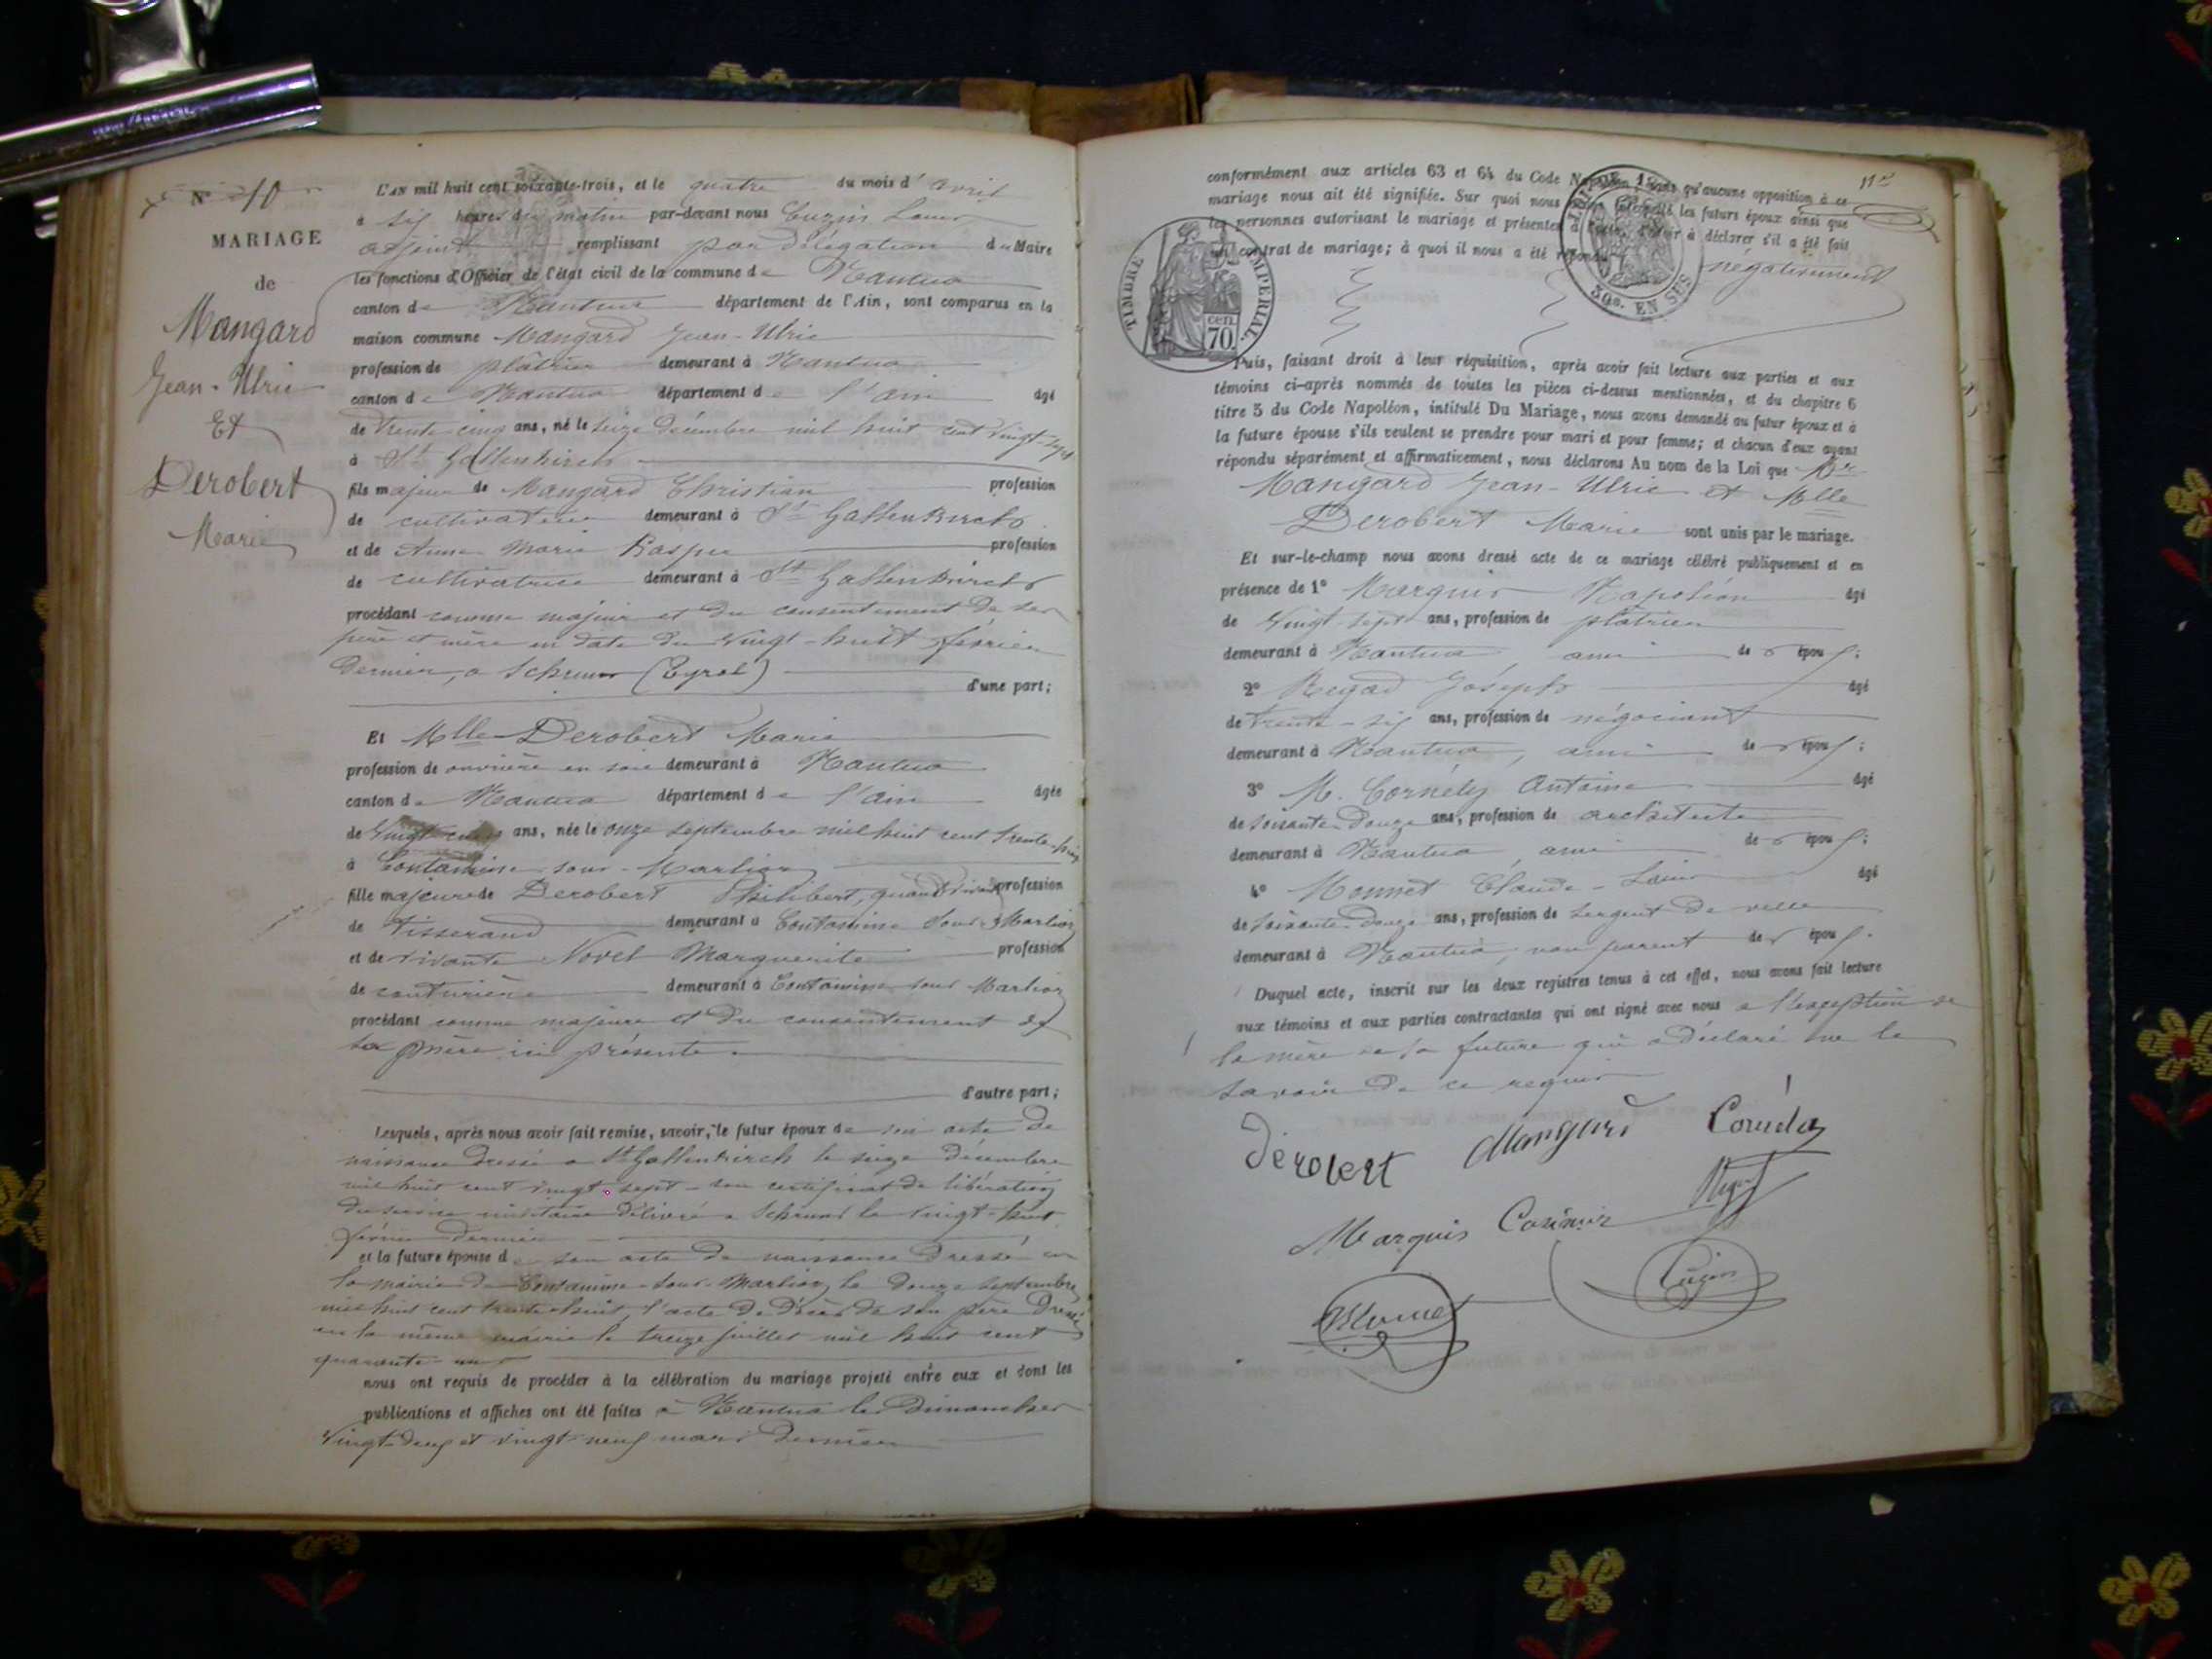 N° 10
MARIAGE
de
Mangard
Jean-Ulric
Et
Derobert
Marie
L'AN mil huit cent soixante-trois, et le quatre du mois d'avril
à six heures du matin par-devant nous Cuzin Louis
adjoint remplissant par délégation du Maire
les fonctions d'Officier de l'état civil de la commune de Nantua
canton de Nantua département de l'Ain, sont comparus en la
maison commune Mangard Jean-Ulric
profession de plâtrier demeurant à Nantua
canton de Nantua département de l'ain âgé
de trente-cinq ans, né le seize décembre mil huit cent vingt-sept
à St Gallenkirch
fils majeur de Mangard Christian profession
de cultivateur demeurant à St Gallenkirch
et de Anne Marie profession
de cultivatrice demeurant à St Gallenkirch
procédant comme majeur et du consentement de ses
père et mère en date du vingt-huit février
dernier, à Schruns (Tyrol)
d'une part;
Et Mlle Derobert Marie
profession de ouvrière en soie demeurant à Nantua
canton de Nantua département de l'ain âgée
de vingt ans, née le onze septembre mil huit cent trente-huit
à Contamine-sous-Marlioz
fille majeure de Derobert Philibert, quand vivait profession
de tisserand demeurant à Contamine sous Marlioz
et de vivante Novel Marguerite profession
de couturière demeurant à Contamine sous Marlioz
procédant comme majeure et du consentement de
sa mère ici présente
d'autre part;
Lesquels, après nous avoir fait remise, savoir, le futur époux de son acte de
naissance dressé à St Gallenkirch le seize décembre
mil huit cent vingt-sept - son certificat de libération
du service militaire délivré à Schruns le vingt-huit
février dernier
et la future épouse de son acte de naissance dressé en
la mairie de Contamine-sous-Marlioz le douze septembre
mil huit cent trente-huit, l'acte de décès de son père dressé
en la même mairie le treize juillet mil huit cent
quarante-un
nous ont requis de procéder à la célébration du mariage projeté entre eux et dont les
publications et affiches ont été faites à Nantua les dimanches
vingt-deux et vingt-neuf mars dernier
conformément aux articles 63 et 64 du Code Napoléon, sans qu'aucune opposition à ce
mariage nous ait été signifiée. Sur quoi nous les futurs époux ainsi que
les personnes autorisant le mariage et présentes à déclarer s'il a été fait
un contrat de mariage; à quoi il nous a été répondu négativement
TIMBRE IMPÉRIAL
cen.
70.
30e. EN SUS
Puis, faisant droit à leur réquisition, après avoir fait lecture aux parties et aux
témoins ci-après nommés de toutes les pièces ci-dessus mentionnées, et du chapitre 6
titre 5 du Code Napoléon, intitulé Du Mariage, nous avons demandé au futur époux et à
la future épouse s'ils veulent se prendre pour mari et pour femme; et chacun d'eux ayant
répondu séparément et affirmativement, nous déclarons Au nom de la Loi que Mr
Mangard Jean-Ulric et Mlle
Derobert Marie sont unis par le mariage.
Et sur-le-champ nous avons dressé acte de ce mariage célébré publiquement et en
présence de 1° Marquis Napoléon âgé
de vingt-sept ans, profession de plâtrier
demeurant à Nantua, ami des époux;
2° Regad Joseph âgé
de trente-six ans, profession de négociant
demeurant à Nantua, ami des époux;
3° M. Cornély Antoine âgé
de soixante-douze ans, profession de architecte
demeurant à Nantua ami des époux;
4° Monnet Claude-Louis âgé
de soixante-douze ans, profession de sergent de ville
demeurant à Nantua, non parent des époux.
Duquel acte, inscrit sur les deux registres tenus à cet effet, nous avons fait lecture
aux témoins et aux parties contractantes qui ont signé avec nous à l'exception de
la mère de la future qui a déclaré ne le
savoir de ce requis
Derobert Mangard
Marquis Casimir
Monnet Cuzin